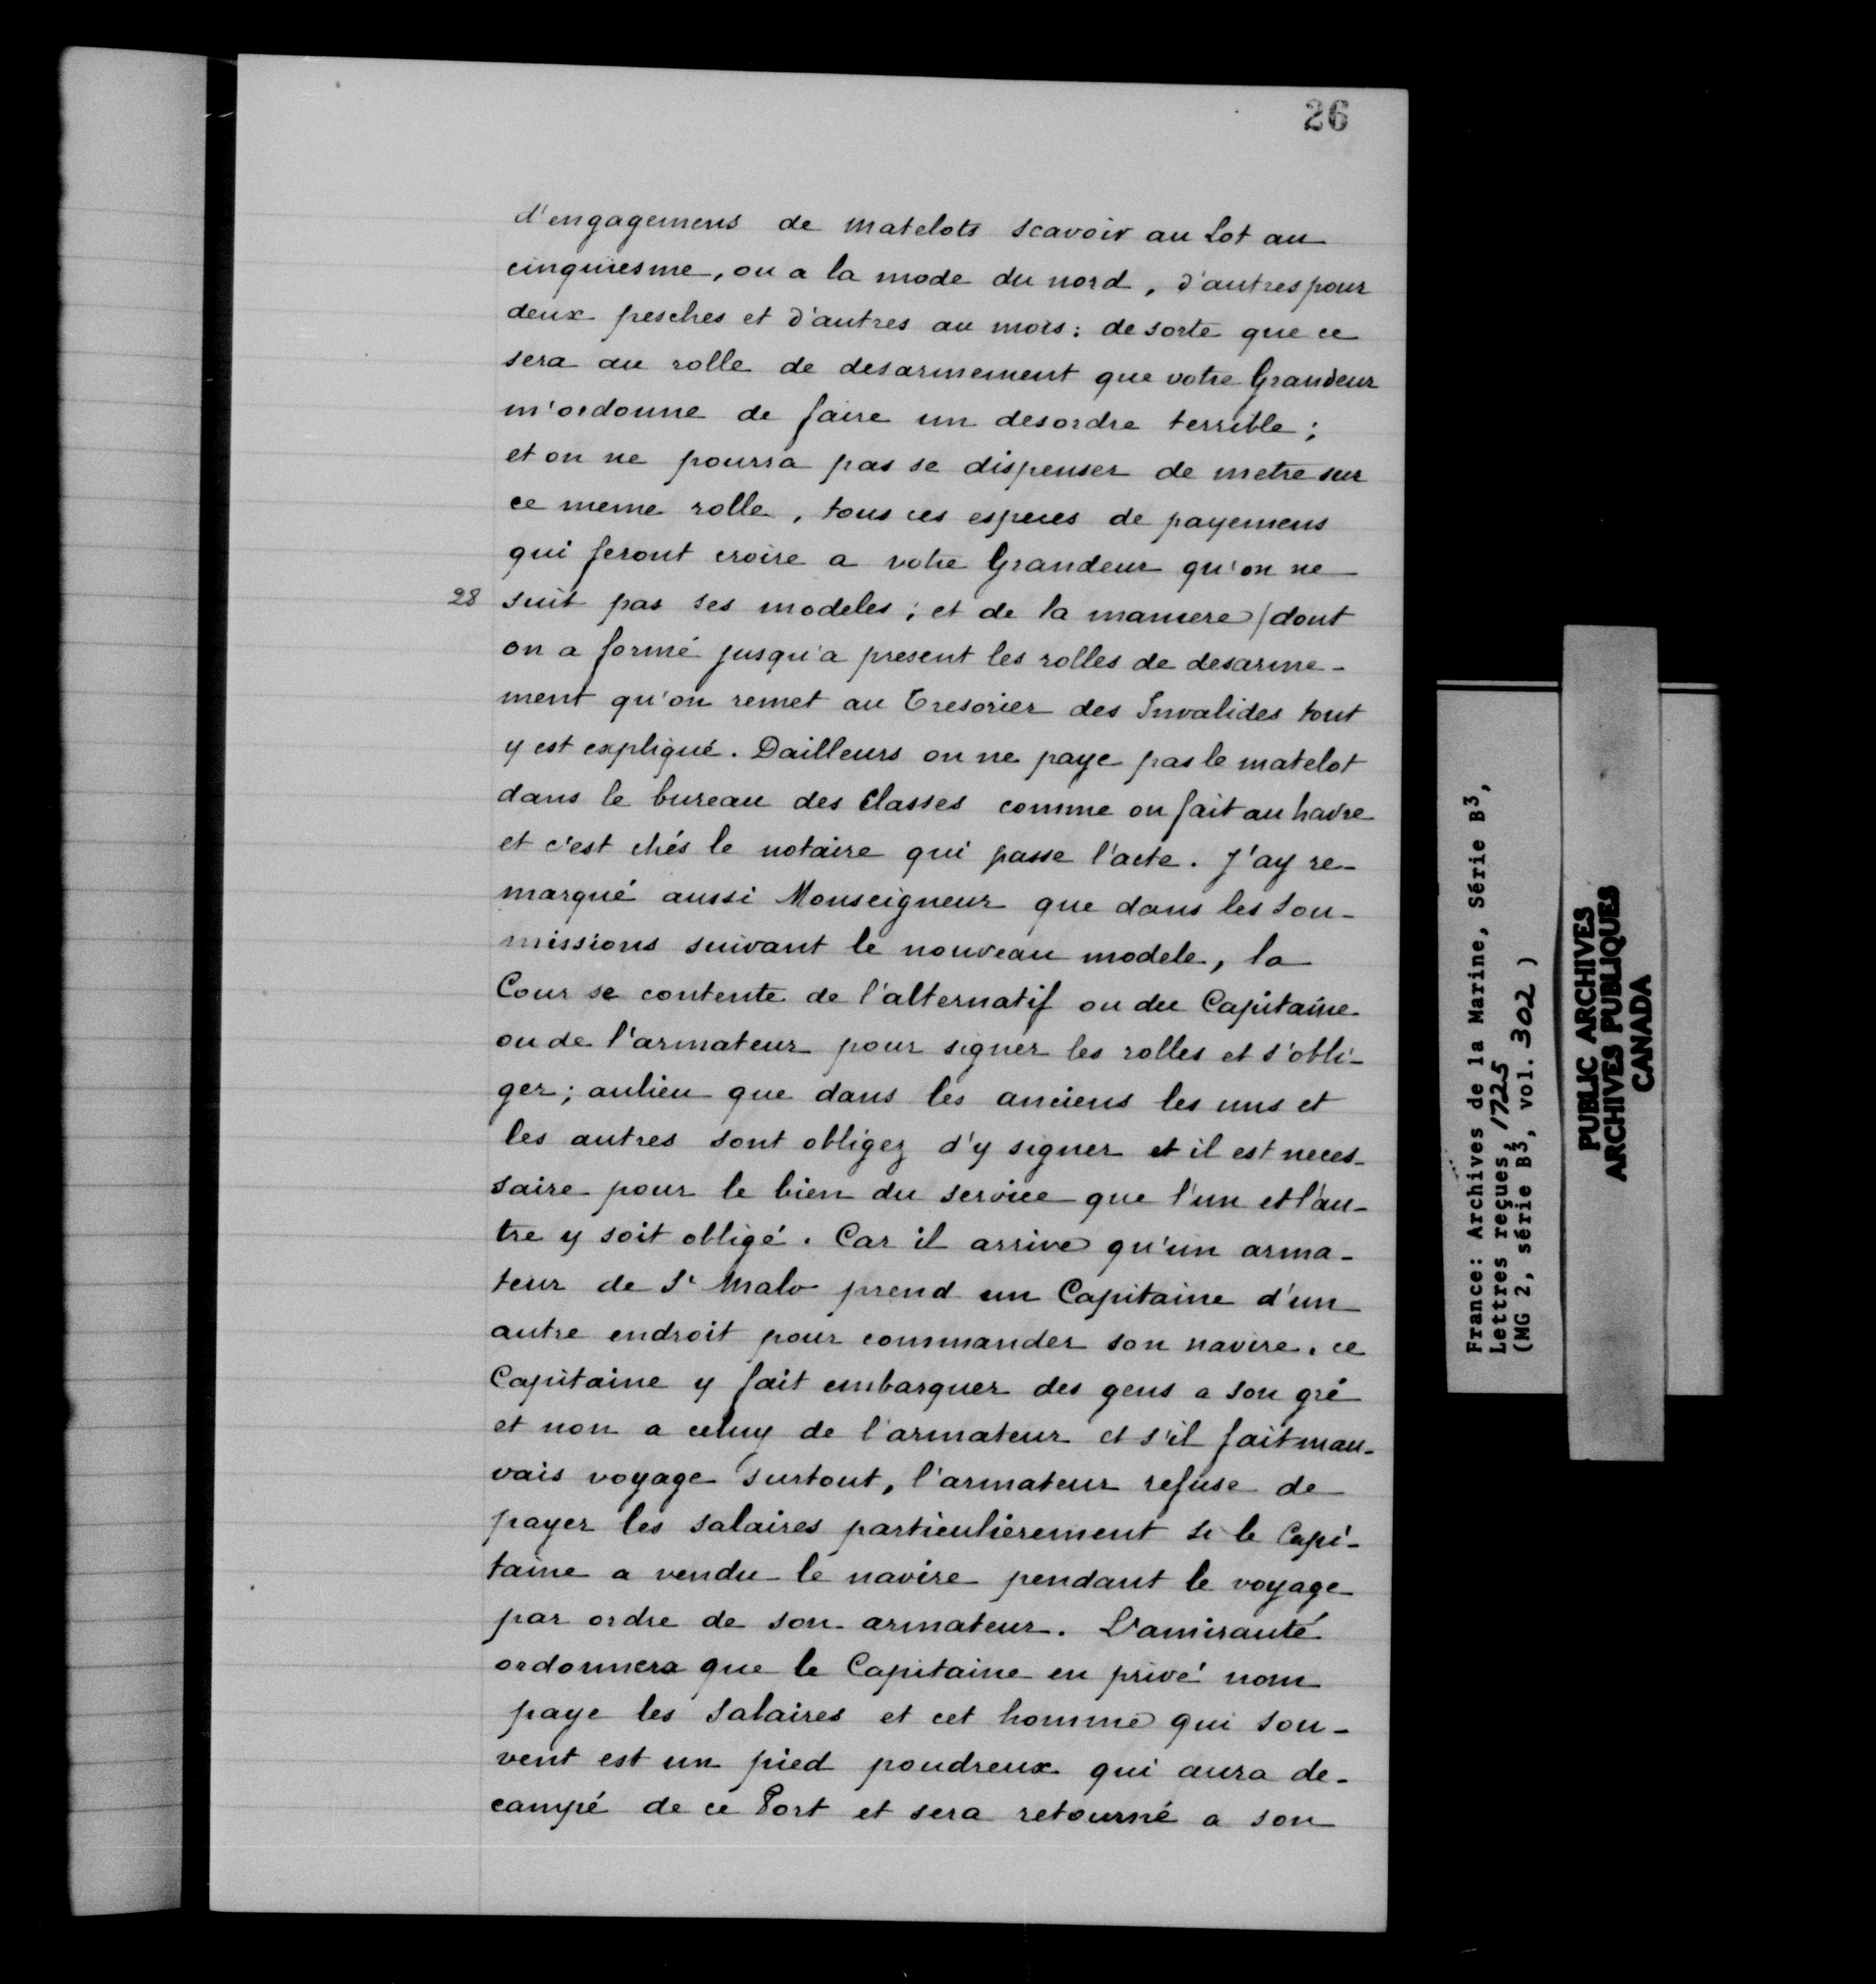 26
d'engagemens de matelots scavoir au Lot au
cinquiesme, ou a la mode du nord, d'autres pour
deux pesches et d'autres au mois: de sorte que ce
sera au rolle de desarmement que votre Grandeur
m'ordonne de faire un desordre terrible;
et on ne pourra pas se dispenser de metre sur
ce meme rolle, tous ces especes de payemens
qui feront croire a votre Grandeur qu'on ne
28 suit pas ses modeles; et de la maniere / dont
on a formé jusqu'a present les rolles de desarme-
ment qu'on remet au Tresorier des Invalides tout
y est expliqué. Dailleurs on ne paye pas le matelot
dans le bureau des Classes comme on fait au havre
et c'est chés le notaire qui passe l'acte. J'ay re-
marqué aussi Monseigneur que dans les sou-
missions suivant le nouveau modele, la
Cour se contente de l'alternatif ou du Capitaine
ou de l'armateur pour signer les rolles et s'obli-
ger; aulieu que dans les anciens les uns et
les autres sont obligez d'y signer et il est neces-
saire pour le bien du service que l'un et l'au-
tre y soit obligé. Car il arrive qu'un arma-
teur de St Malo prend un Capitaine d'un
autre endroit pour commander son navire, ce
Capitaine y fait embarquer des gens a son gré
et non a celuy de l'armateur et s'il fait mau-
vais voyage surtout, l'armateur refuse de
payer les salaires particulièrement si le Capi-
taine a vendu le navire pendant le voyage
par ordre de son armateur. L'amirauté
ordonnera que le Capitaine en privé nom
paye les salaires et cet homme qui sou-
vent est un pied poudreux qui aura de-
campé de ce Port et sera retourné a son
France: Archives de la Marine, Série B3,
Lettres reçues, 1725
(MG 2, série B3, vol. 302)
PUBLIC ARCHIVES
ARCHIVES PUBLIQUES
CANADA